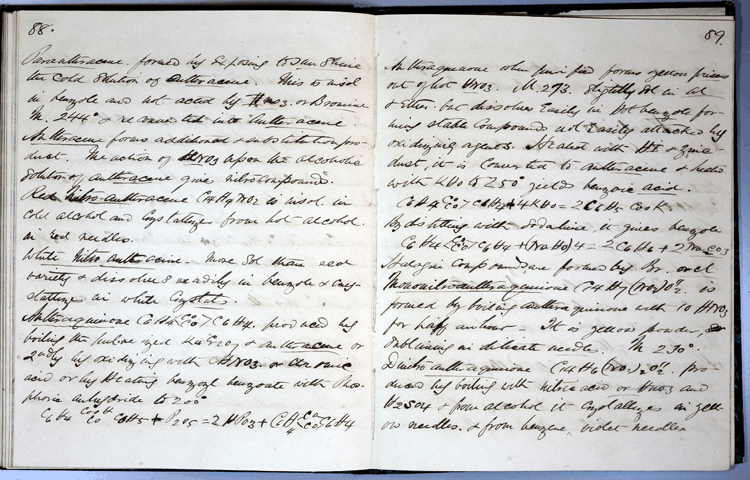 88.
Paranthracene. formed by exposing to sun shine
the cold solution of anthracene. This is insol
in benzole and not acted by HNO3. or Bromine
M. 244° & reconverted into anthracene
Anthracene forms additional & substitution pro-
duct. The action of HNO3 upon the alcoholic
solution of anthracene give nitrocompounds.
Red Nitro-anthracene C14H9NO2 is insol. in
cold alcohol and crystallizes from hot alcohol.
in red needles.
White nitro anthracene. more sol than red
variety & dissolves readily in benzole & crys-
stallizes in white crystals.
Anthraquinone C6H4 CO CO C6H4. produced by
boiling the & anthracene or
2ndly by oxidizing with HNO3. or chromic
acid or by Heating benzoyl benzoate with Phos-
phoric anhydride to 200°
C6H4 C6H5 + P2O5 = 2HPO3 + C6H4 CO CO C6H4
89.
Anthraquinone when purified forms yellow prisms
out of hot HNO3. M. 273. Slightly sol in al
& Ether. but dissolves Easily in hot benzole for-
ming stable compounds not Easily attacked by
oxidizing agents. Heated with HI & zinc
dust, it is converted to anthracene & heated
with KHO to 250° yield benzoic acid.
C6H4 CO CO C6H4 + 4KHO = 2C6H5 COOK.
By distilling with Sodalime it gives benzole
C6H4 CO CO C6H4 + (NaHO)4 = 2C6H6 + 2Na2CO3
Halogin compounds are formed by Br. or cl
Mononitro-anthraquinone C14H7(NO2)O2. is
formed by boiling anthraquinone with 10 HNO3
for half an hour. It is yellow powder,
subliming in delicate needle. M 230°.
Dinitro anthraquinone C14H6(NO2)2O2. pro-
duced by boiling with nitric acid or HNO3 and
H2SO4 & from alcohol it crystallizes in yell-
ow needles. & from benzene, violet needles